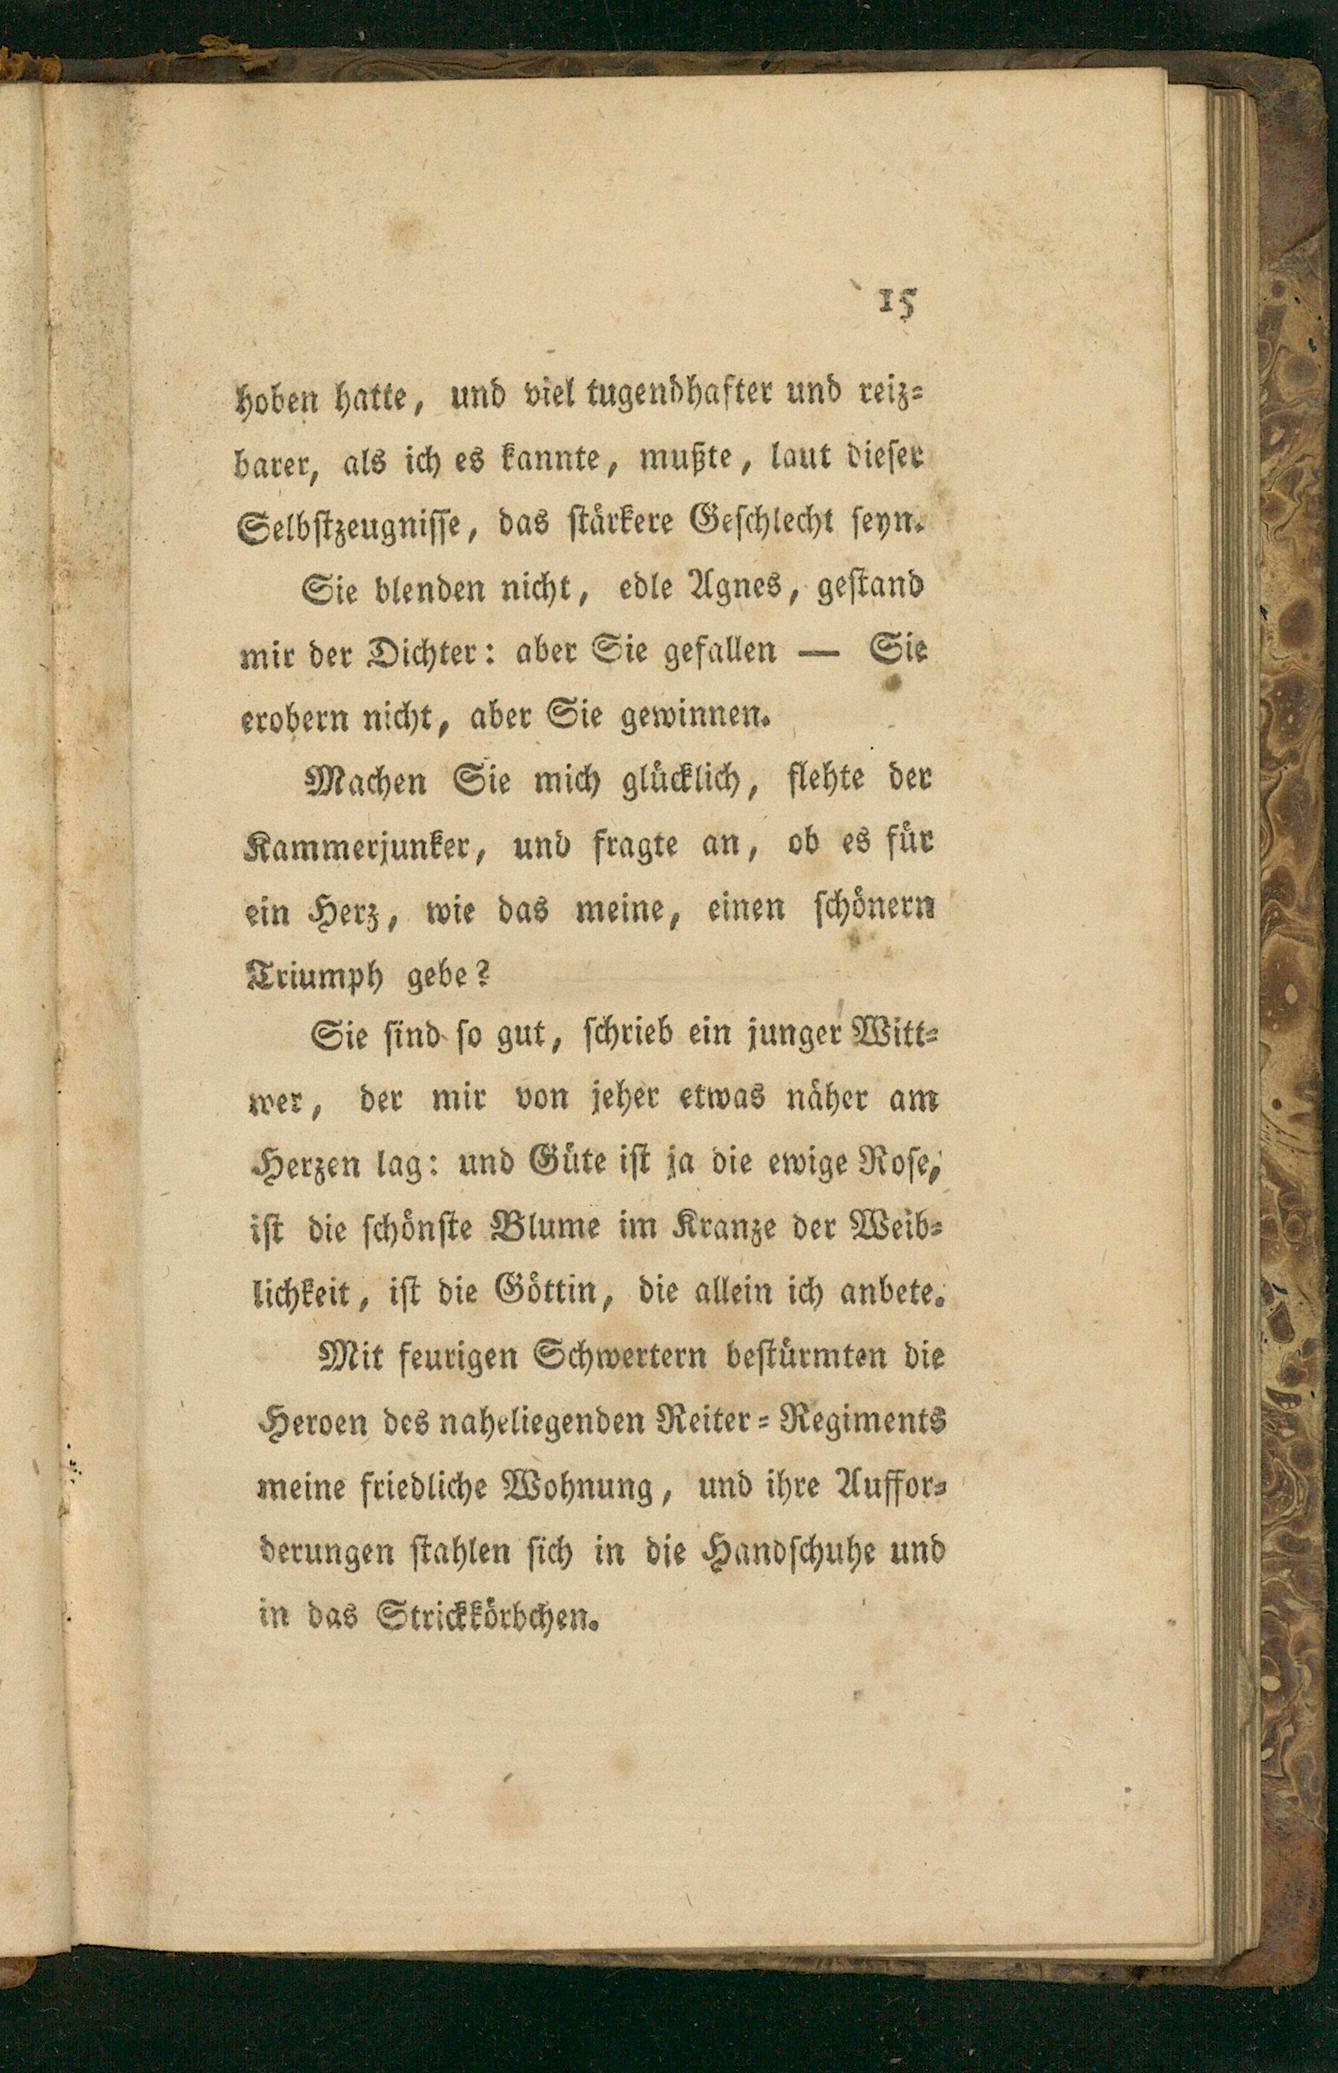 15
hoben hatte, und viel tugendhafter und reiz-
barer, als ich es kannte, mußte, laut dieser
Selbstzeugnisse, das stärkere Geschlecht seyn.
Sie blenden nicht, edle Agnes, gestand
mir der Dichter: aber Sie gefallen — Sie
erobern nicht, aber Sie gewinnen.
Machen Sie mich glücklich, flehte der
Kammerjunker, und fragte an, ob es für
ein Herz, wie das meine, einen schönern
Triumph gebe?
Sie sind so gut, schrieb ein junger Witt-
wer, der mir von jeher etwas näher am
Herzen lag: und Güte ist ja die ewige Rose,
ist die schönste Blume im Kranze der Weib-
lichkeit, ist die Göttin, die allein ich anbete.
Mit feurigen Schwertern bestürmten die
Heroen des naheliegenden Reiter-Regiments
meine friedliche Wohnung, und ihre Auffor-
derungen stahlen sich in die Handschuhe und
in das Strickkörbchen.